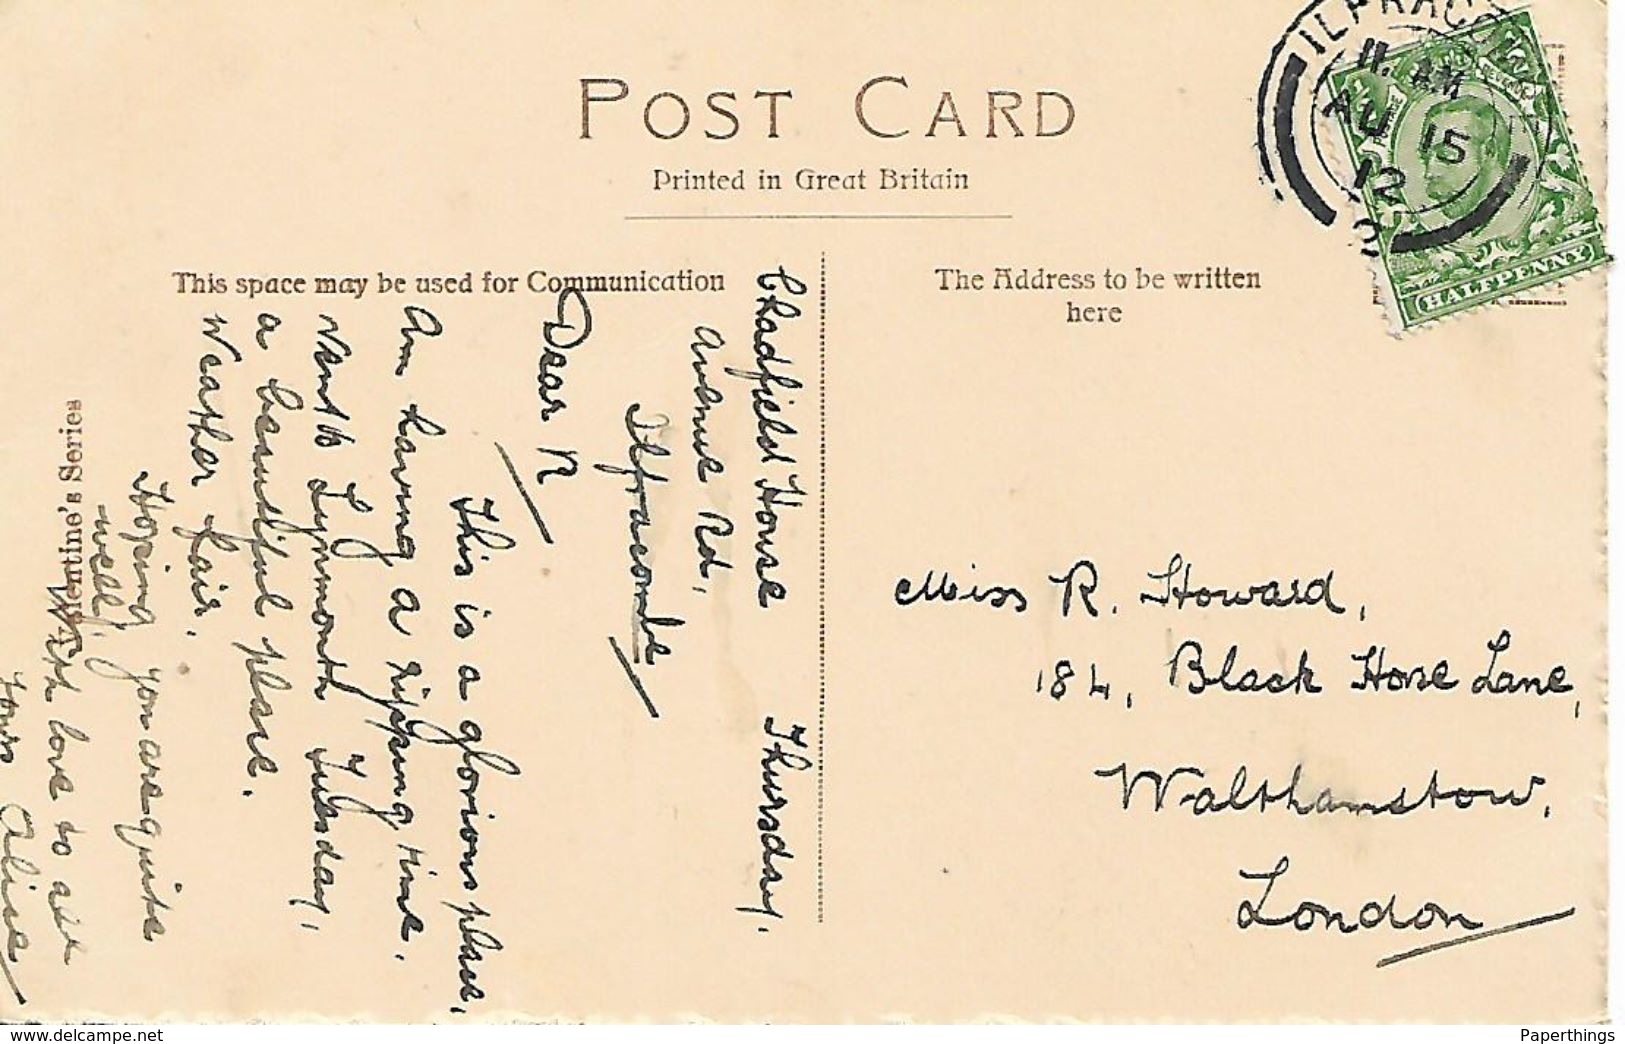 POST CARD
Printed in Great Britain
This space may be used for Communication
The Address to be written
here
ILFRACOMBE
11. AM
AU 15
12
POSTAGE
REVENUE
HALFPENNY
Chadfield House Thursday.
Avenue Rd,
Ilfracombe
Dear R
This is a glorious place,
Am having a ripping time.
Went to Lynmouth Tuesday,
a beautiful place.
Weather fair.
Hoping you are quite
well,
With love to all
Yours Alice
Valentine's Series
Miss R. Howard,
184, Black Horse Lane,
Walthamstow,
London
delcampe.net
Paperthings